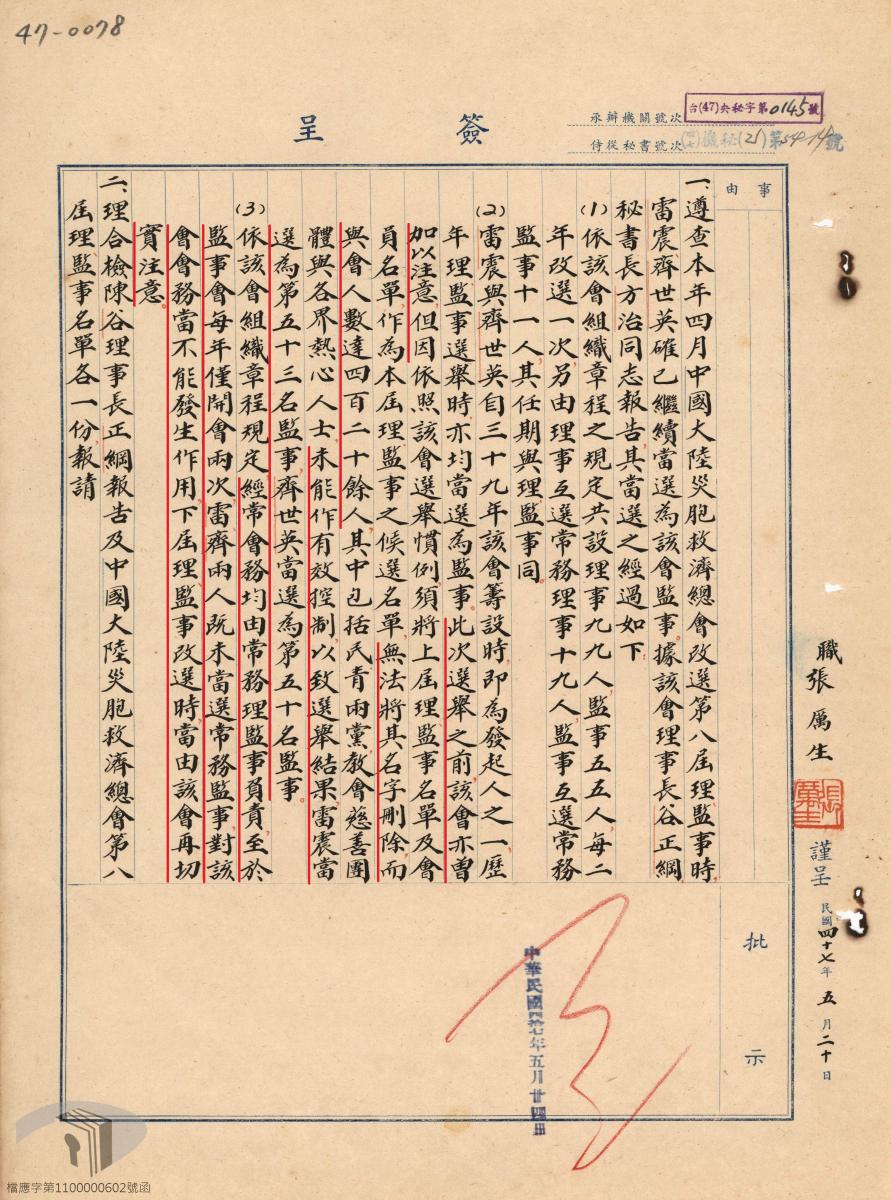 47-0078
簽呈
承辦機關號次
台(47)央秘字第0145號
侍從秘書號次
事由
一、遵查本年四月中國大陸災胞救濟總會改選第八屆理監事時
雷震齊世英確已繼續當選為該會監事。據該會理事長谷正綱
秘書長方治同志報告其當選之經過如下
(1)依該會組織章程之規定共設理事九九人監事五五人每二
年改選一次另由理事互選常務理事十九人監事互選常務
監事十一人其任期與理監事同。
(2)雷震與齊世英自三十九年該會籌設時即為發起人之一歷
年理監事選舉時亦均當選為監事。此次選舉之前該會亦曾
加以注意但因依照該會選舉慣例須將上屆理監事名單及會
員名單作為本屆理監事之候選名單無法將其名字刪除而
與會人數達四百二十餘人其中包括民青兩黨教會慈善團
體與各界熱心人士未能作有效控制以致選舉結果雷震當
選為第五十三名監事齊世英當選為第五十名監事。
(3)依該會組織章程規定經常會務均由常務理監事負責至於
監事會每年僅開會兩次雷齊兩人既未當選常務監事對該
會會務當不能發生作用下屆理監事改選時當由該會再切
實注意。
二、理合檢陳谷理事長正綱報告及中國大陸災胞救濟總會第八
屆理監事名單各一份報請
職張厲生
張厲生
謹呈
民國四十七年五月二十日
批示
中華民國四拾七年五月廿四日
檔應字第1100000602號函